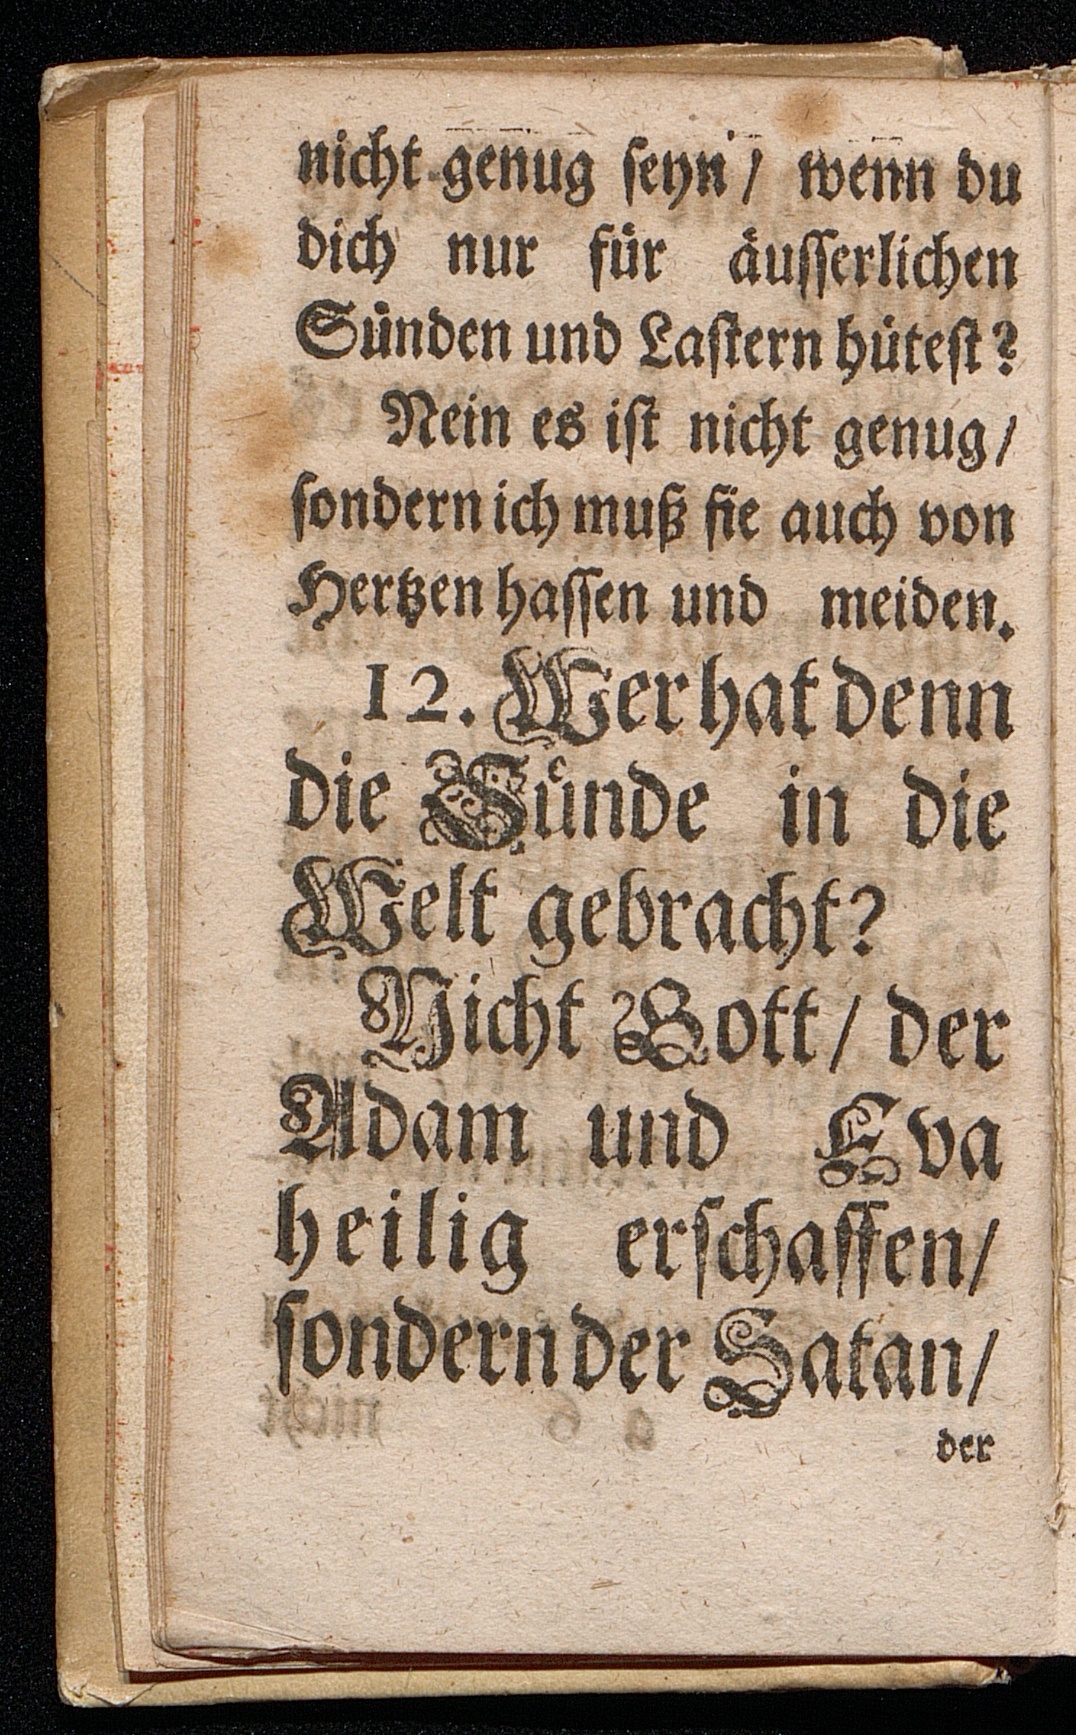 nicht genug seyn / wenn du
dich nur für äusserlichen
Sünden und Lastern hütest?
Nein es ist nicht genug /
sondern ich muß sie auch von
Hertzen hassen und meiden.
12. Wer hat denn
die Sünde in die
Welt gebracht?
Nicht Gott / der
Adam und Eva
heilig erschaffen /
sondern der Satan /
der